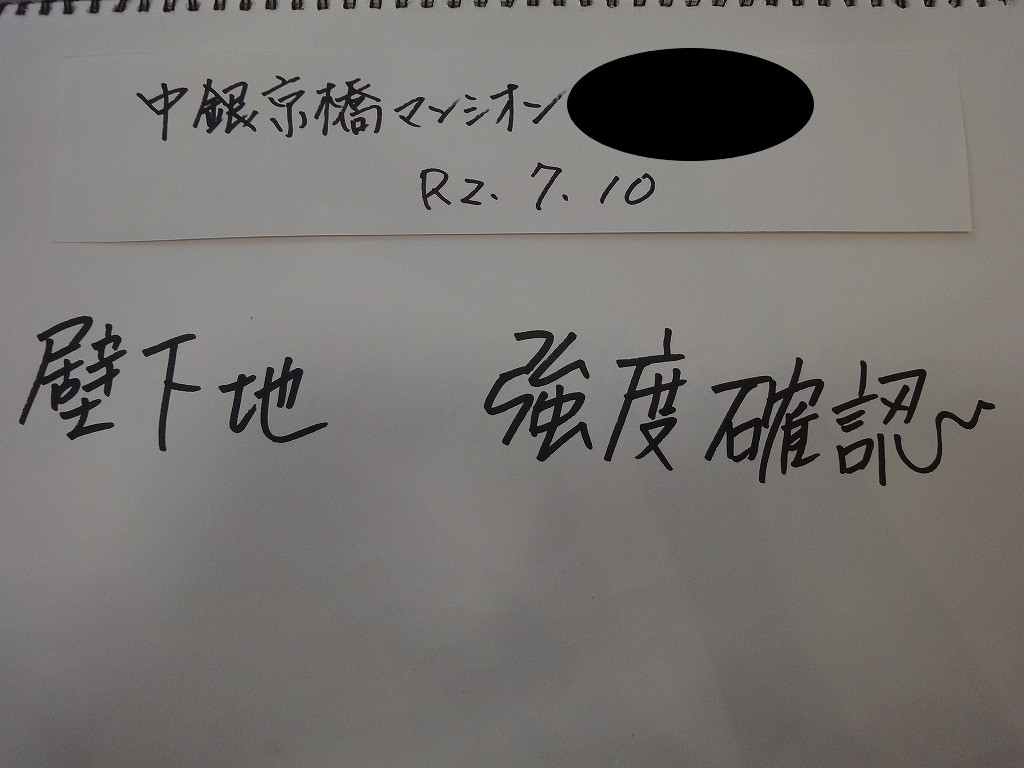 中銀京橋マンシオン
R2.7.10
壁下地 強度確認〜